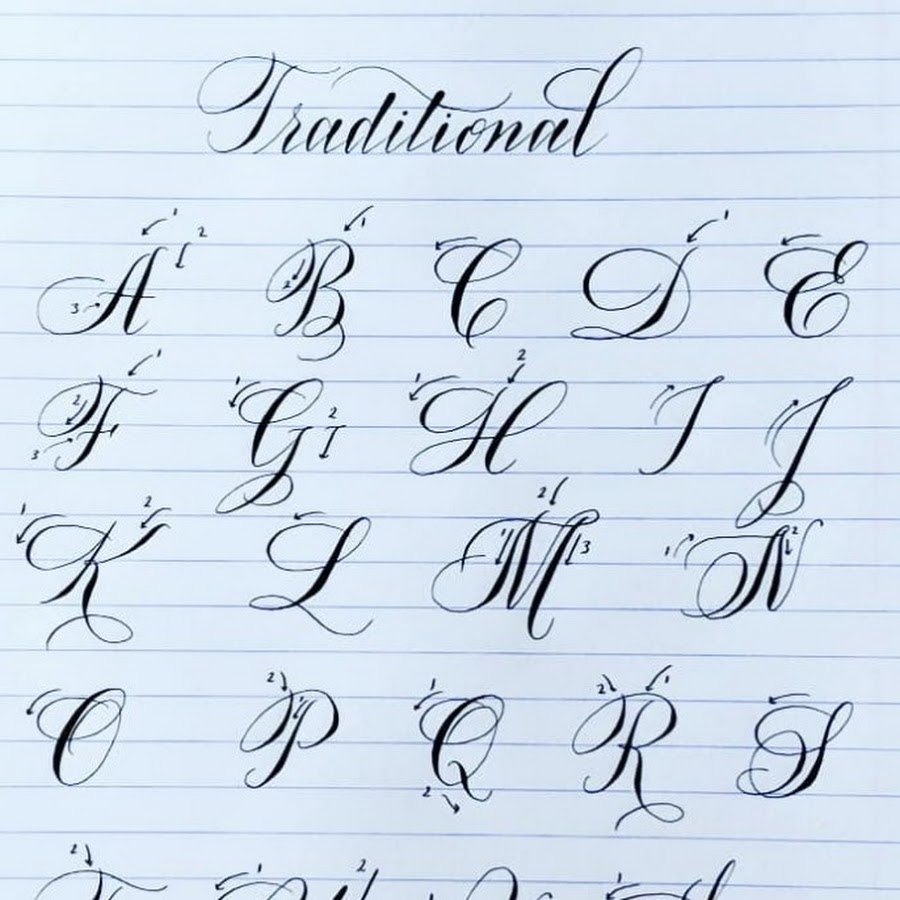 Traditional
A B C D E
F G H I J
K L M N
O P Q R S